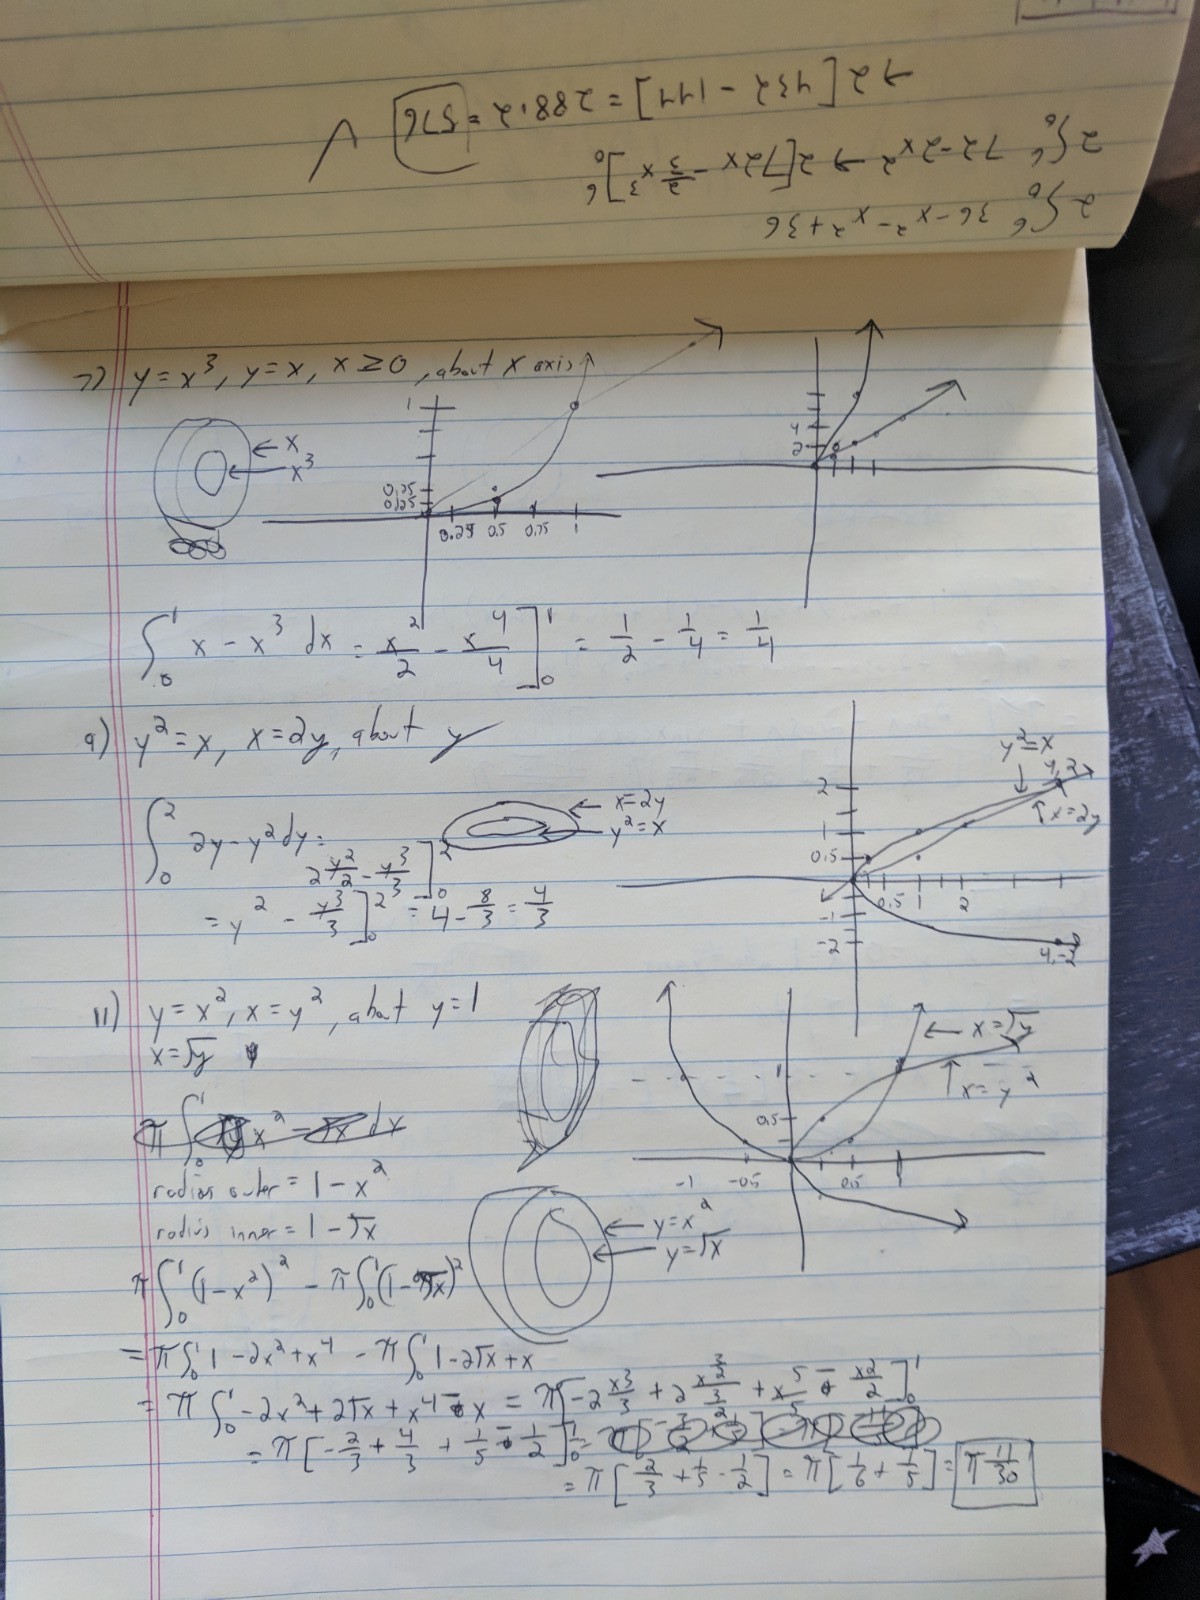 2∫₀⁶ 36 - x² - x² + 36
2∫₀⁶ 72 - 2x² → 2[72x - 2/3 x³]₀⁶
→ 2[432 - 144] = 288·2 = 576
7) y = x³, y = x, x ≥ 0, about x axis
← x
← x³
1
0.25
0.125
0.25 0.5 0.75 1
4
2
∫₀¹ x - x³ dx = x²/2 - x⁴/4 ]₀¹ = 1/2 - 1/4 = 1/4
9) y² = x, x = 2y, about y
∫₀² 2y - y² dy =
2 y²/2 - y³/3 ]₀²
= y² - y³/3 ]₀² = 4 - 8/3 = 4/3
← x = 2y
← y² = x
y² = x
4, 2
x = 2y
2
1
0.5
0.5 1 2
-1
-2
4, -2
11) y = x², x = y², about y = 1
x = √y
← x = √y
x = y²
1
0.5
-1 -0.5 0.5
radius outer = 1 - x²
radius inner = 1 - √x
← y = x²
← y = √x
π∫₀¹ (1 - x²)² - π∫₀¹ (1 - √x)²
= π∫₀¹ 1 - 2x² + x⁴ - π∫₀¹ 1 - 2√x + x
= π∫₀¹ -2x² + 2√x + x⁴ - x = π[-2 x³/3 + 2 x^(3/2)/(3/2) + x⁵/5 - x²/2]₀¹
= π[-2/3 + 4/3 + 1/5 - 1/2]₀¹
= π[2/3 + 1/5 - 1/2] = π[1/6 + 1/5] = π 11/30